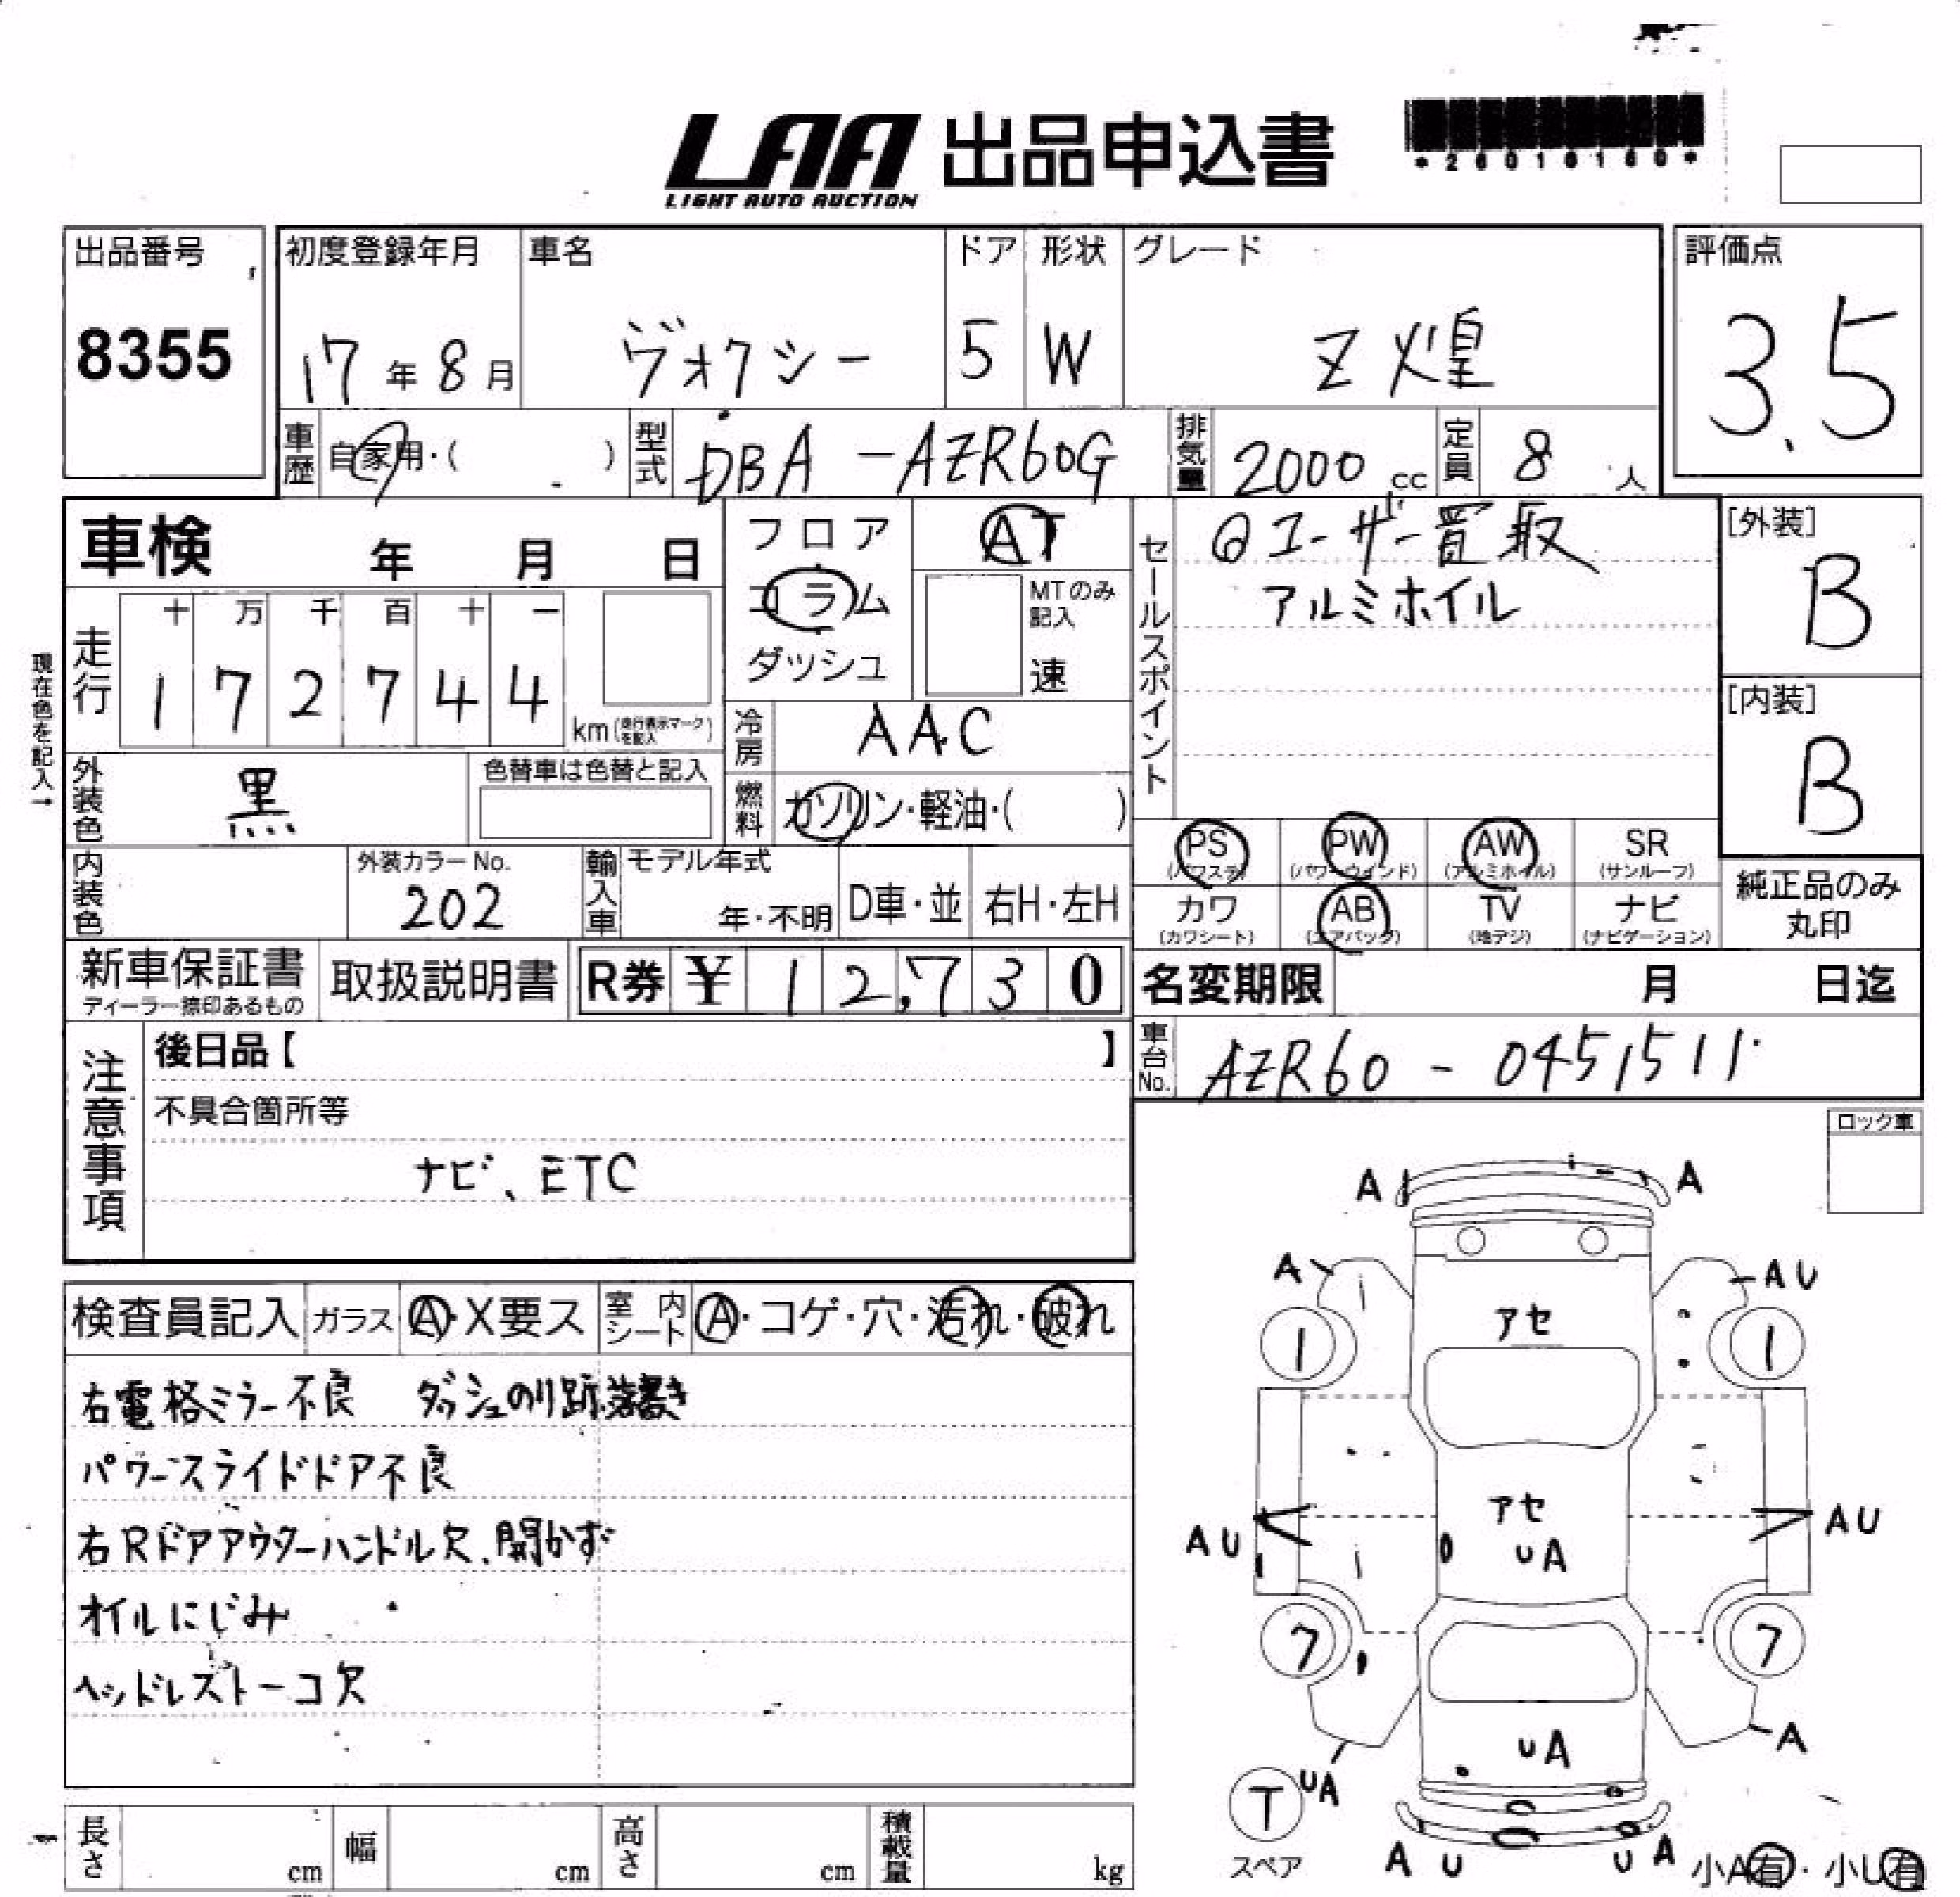 LAA 出品申込書
LIGHT AUTO AUCTION
*26010160*
出品番号
8355
初度登録年月
17年8月
車名
ヴォクシー
ドア
5
形状
W
グレード
Z煌
評価点
3.5
車歴
自家用・( )
型式
DBA-AZR60G
排気量
2000 cc
定員
8 人
車検 年 月 日
フロア
コラム
ダッシュ
AT
MTのみ記入
速
セールスポイント
ユーザー買取
アルミホイル
[外装]
B
[内装]
B
現在色を記入→
走行
十 万 千 百 十 一
1 7 2 7 4 4
km(走行表示マークを記入)
冷房
AAC
燃料
ガソリン・軽油・( )
外装色
黒
色替車は色替と記入
内装色
外装カラーNo.
202
輸入車
モデル年式
年・不明
D車・並
右H・左H
PS (パワステ)
PW (パワーウィンド)
AW (アルミホイル)
SR (サンルーフ)
カワ (カワシート)
AB (エアバッグ)
TV (地デジ)
ナビ (ナビゲーション)
純正品のみ
丸印
新車保証書
ディーラー捺印あるもの
取扱説明書
R券 ¥ 12,730
名変期限 月 日迄
車台No.
AZR60-0451511
注意事項
後日品【 】
不具合箇所等
ナビ、ETC
ロック車
検査員記入
ガラス
A・X要ス
室内シート
A・コゲ・穴・汚れ・破れ
右電格ミラー不良 ダッシュのり跡.落書き
パワースライドドア不良
右Rドアアウターハンドル欠、開かず
オイルにじみ
ヘッドレスト一コ欠
A A
A AU
1 アセ 1
AU アセ AU
UA
7 7
UA A
UA
T
スペア
A U U A
小A有・小U有
長さ cm
幅 cm
高さ cm
積載量 kg